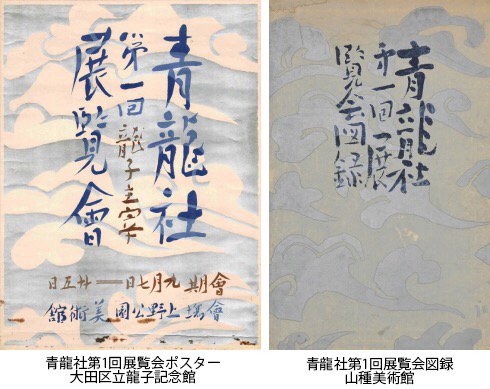 青龍社
第一回龍子主宰
展覽會
會期 九月七日―廿五日
會場 上野公園美術館
青龍社
第一回展
覧会図録
青龍社第1回展覧会ポスター
大田区立龍子記念館
青龍社第1回展覧会図録
山種美術館